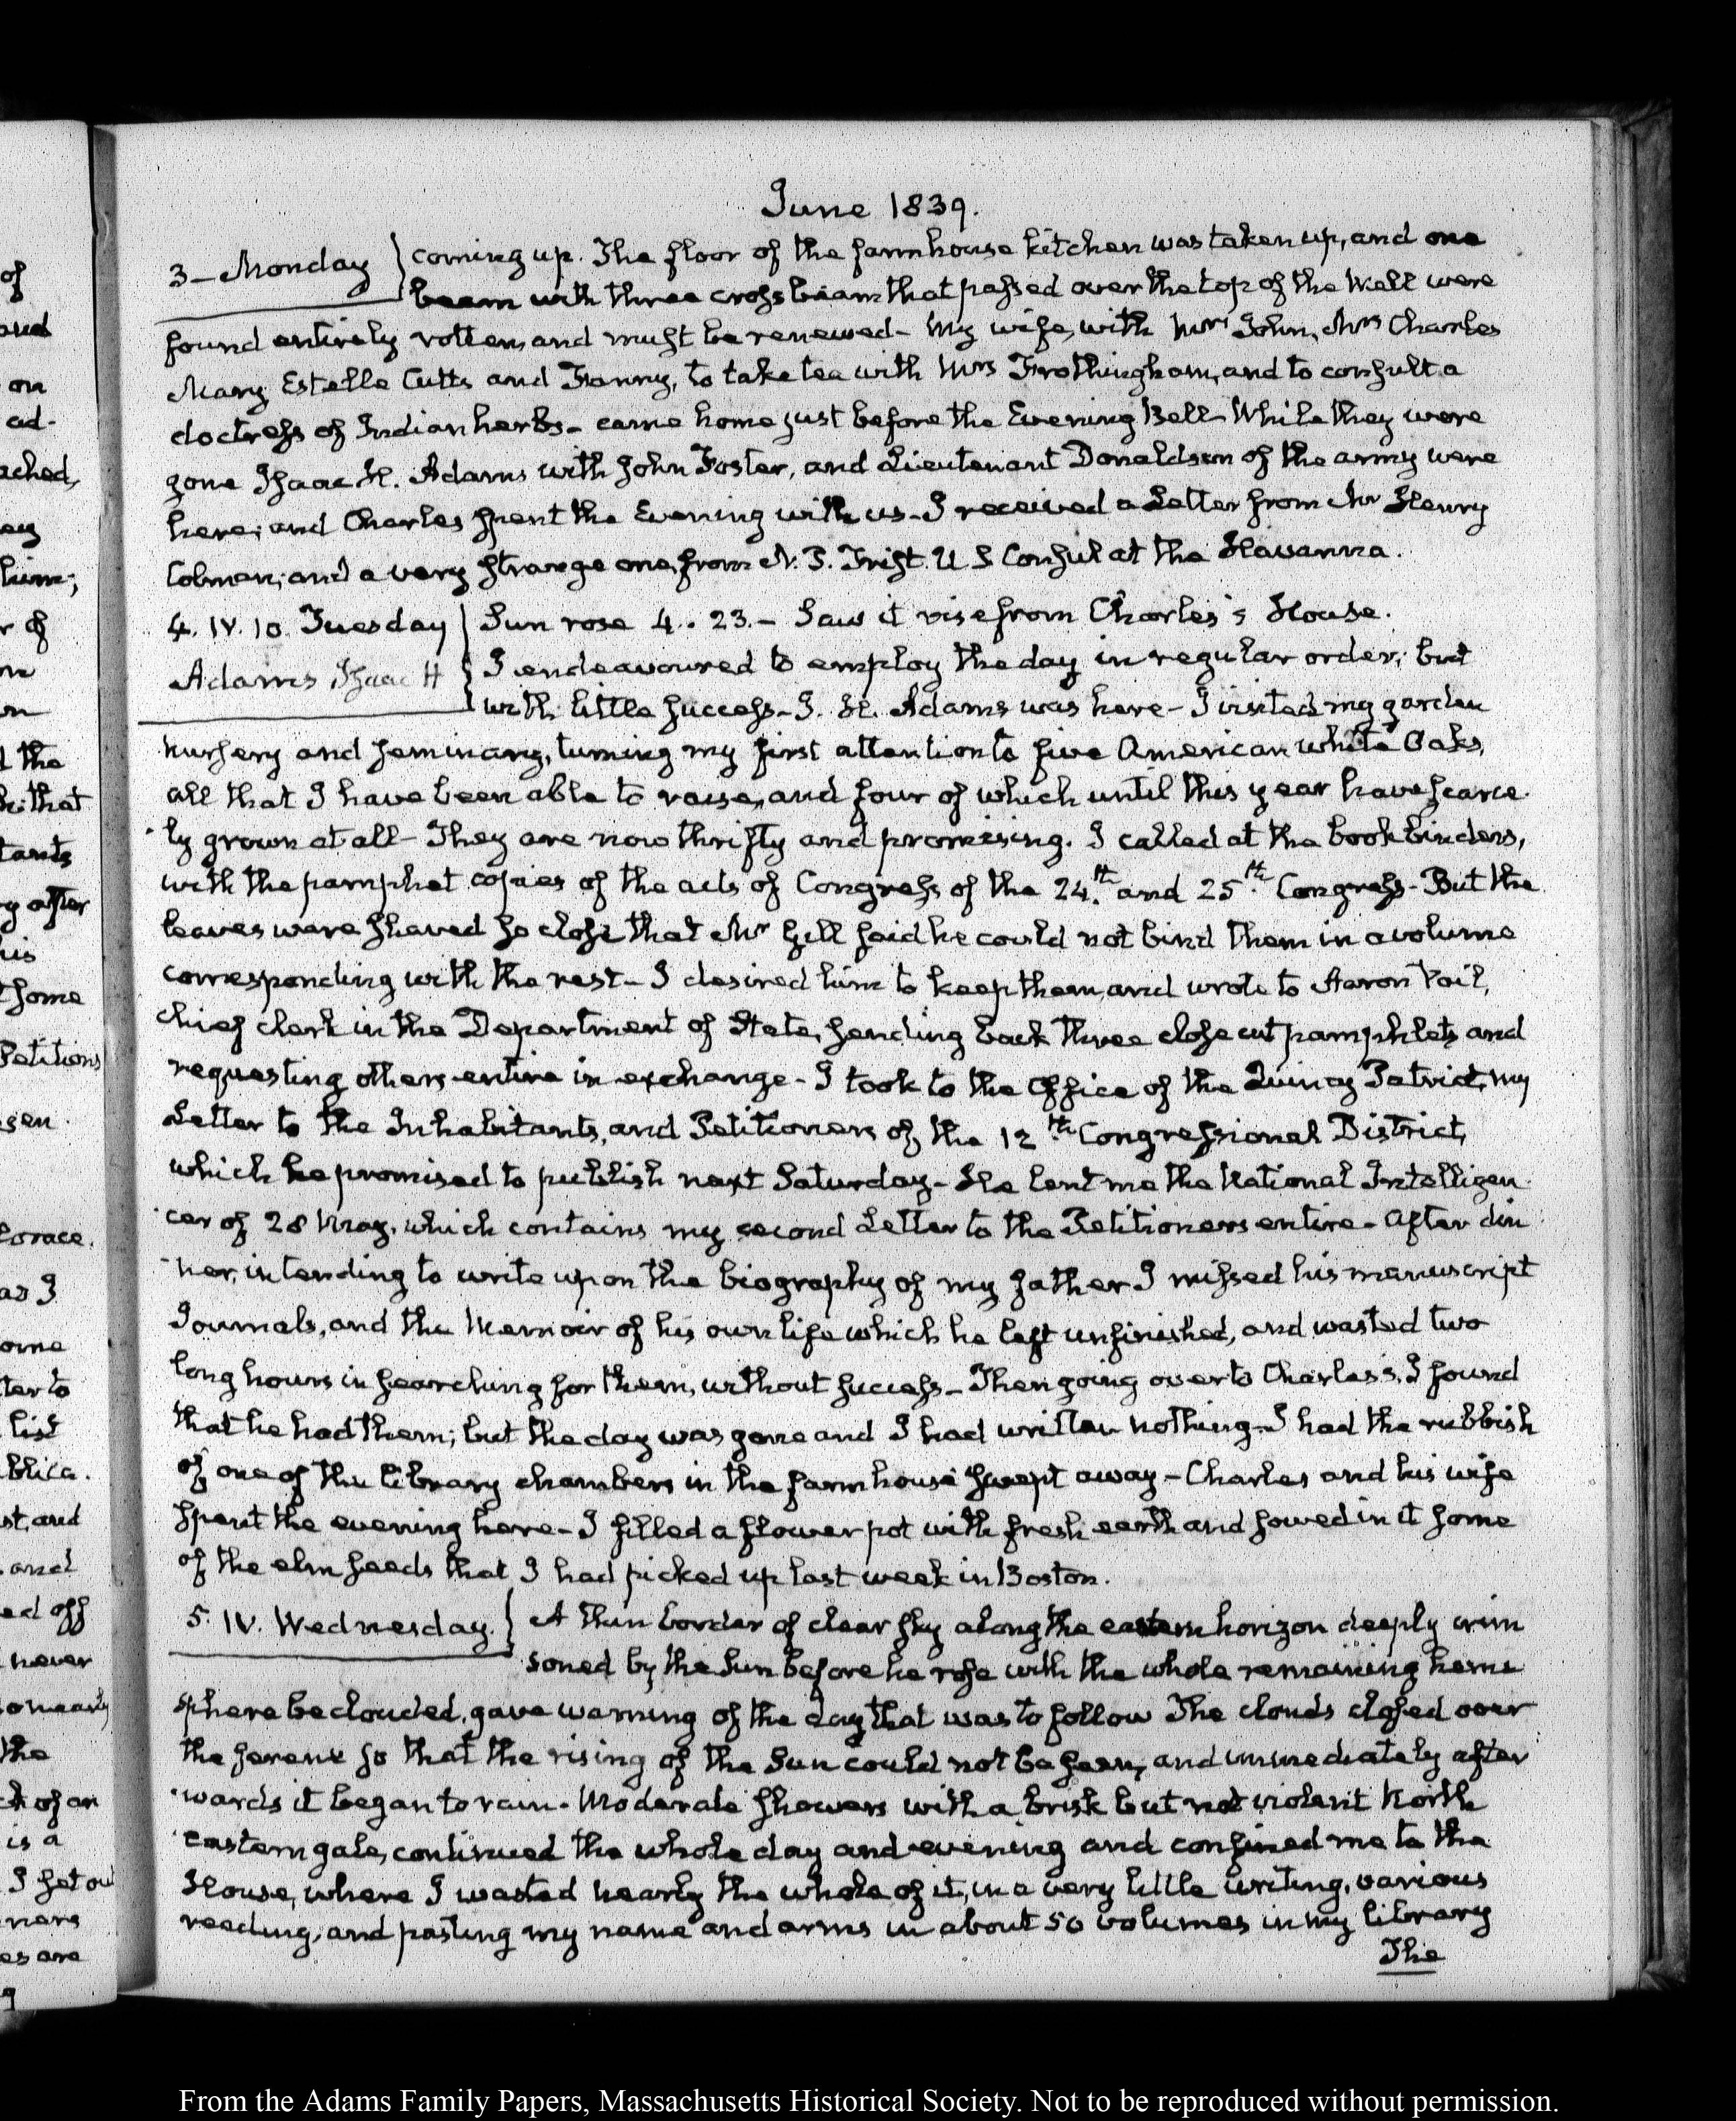 June 1839.
3 - Monday } coming up. The floor of the farmhouse kitchen was taken up, and one
beam with three cross beams that passed over the top of the Wall were
found entirely rotten, and must be renewed - My wife, with Mrs John, Mrs Charles
Mary, Estelle Cutts and Fanny, to take tea with Mrs Frothingham, and to consult a
doctress of Indian herbs - came home just before the Evening Bell - While they were
gone Isaac H. Adams with John Foster, and Lieutenant Donaldson of the army were
here; and Charles spent the Evening with us - I received a Letter from Mr Henry
Colman; and a very strange one, from N. P. Trist. U S Consul at the Havanna.
4. IV. 10. Tuesday } Sun rose 4..23. - Saw it rise from Charles's House.
Adams Isaac H } I endeavoured to employ the day in regular order; but
with little success - I. H. Adams was here - I visited my garden
nursery and seminary, turning my first attention to five American white Oaks,
all that I have been able to raise, and four of which until this year have scarce-
ly grown at all - They are now thrifty and promising. I called at the book binders,
with the pamphet copies of the acts of Congress of the 24.th and 25.th Congress - But the
leaves were shaved so close that Mr Gill said he could not bind them in a volume
corresponding with the rest - I desired him to keep them, and wrote to Aaron Vail,
chief clerk in the Department of State, sending back three close cut pamphlets and
requesting others entire in exchange - I took to the Office of the Quincy Patriot, my
Letter to the Inhabitants, and Petitioners of, the 12th Congressional District,
which he promised to publish next Saturday - He lent me the National Intelligen-
cer of 28 May, which contains my second Letter to the Petitioners entire - After din
ner, intending to write upon the biography of my father I missed his manuscript
Journals, and the Memoir of his own life which he left unfinished, and wasted two
long hours in searching for them, without success - Then going over to Charles's, I found
that he had them; but the day was gone and I had written nothing - I had the rubbish
of one of the library chambers in the farm house swept away - Charles and his wife
spent the evening here - I filled a flower pot with fresh earth and sowed in it some
of the elm seeds that I had picked up last week in Boston.
5. IV. Wednesday. } A thin border of clear sky along the eastern horizon deeply crim
soned by the Sun before he rose with the whole remaining hemi
sphere beclouded, gave warning of the day that was to follow The clouds closed over
the serene so that the rising of the Sun could not be seen, and immediately after
wards it began to rain - Moderate showers with a brisk but not violent North
eastern gale, continued the whole day and evening and confined me to the
House, where I wasted nearly the whole of it, in a very little writing, various
reading, and pasting my name and arms in about 50 volumes in my library
The
From the Adams Family Papers, Massachusetts Historical Society. Not to be reproduced without permission.